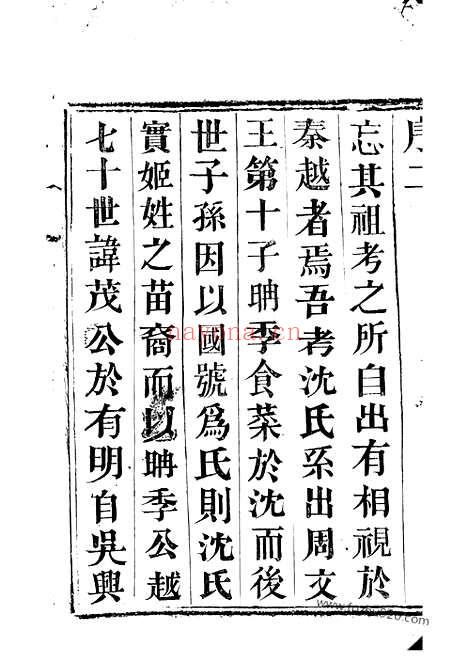 序二
忘其祖考之所自出有相視於
秦越者焉吾考沈氏系出周文
王第十子聃季食菜於沈而後
世子孫因以國號爲氏則沈氏
實姬姓之苗裔而以聃季公越
七十世諱茂公於有明自吳興
nayona.cn